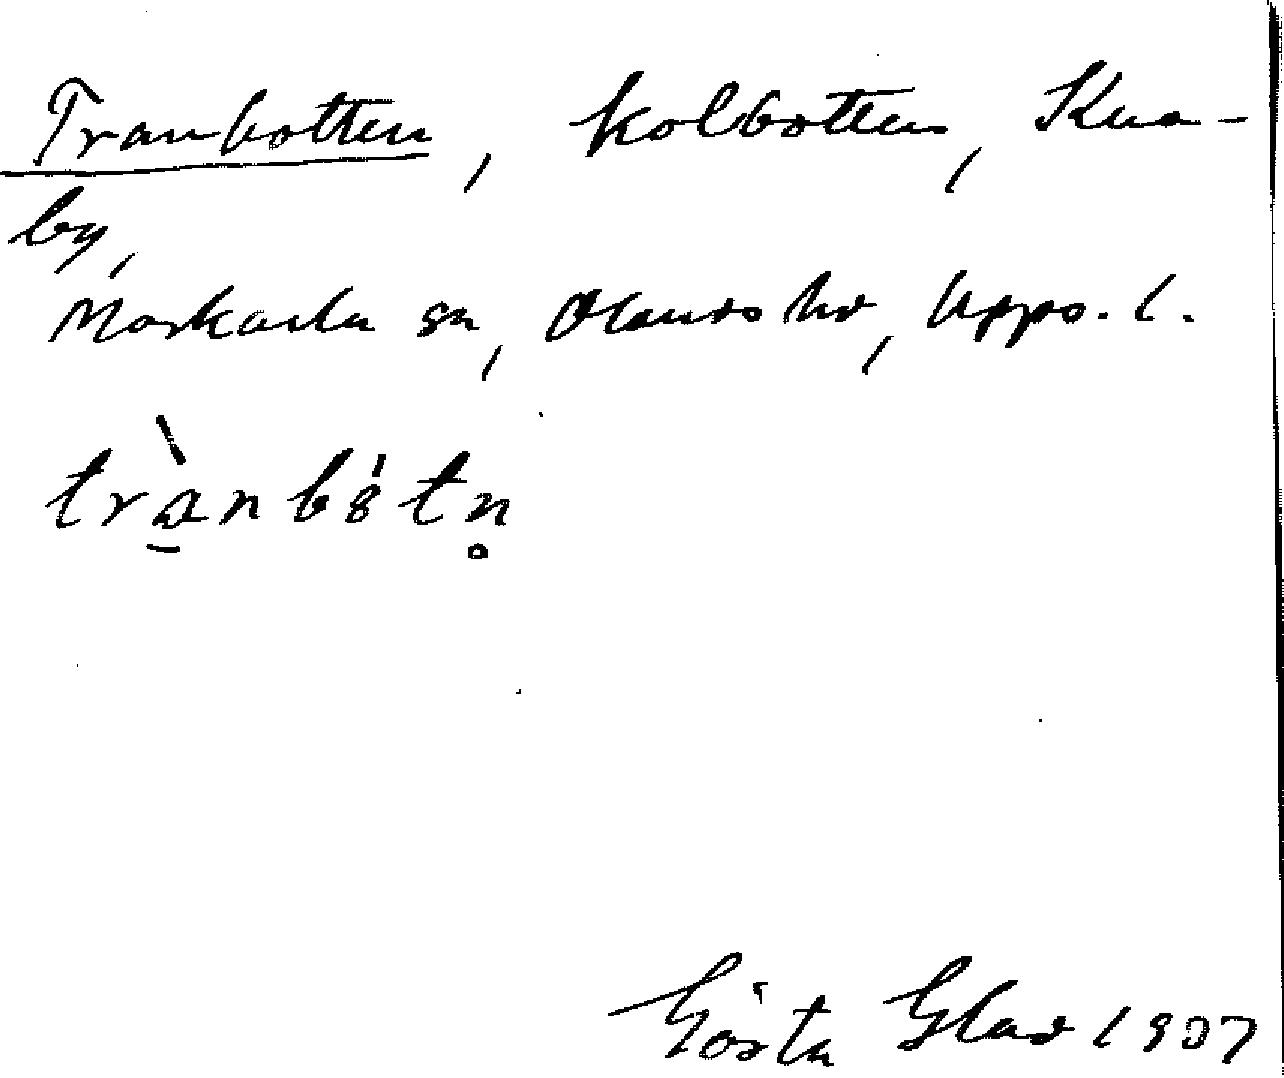 Tranbotten, kolbotten, Kna-
by,
Morkarla sn, Olands hd, Upps. l.
trànbötn̥
Gösta Glad 1907